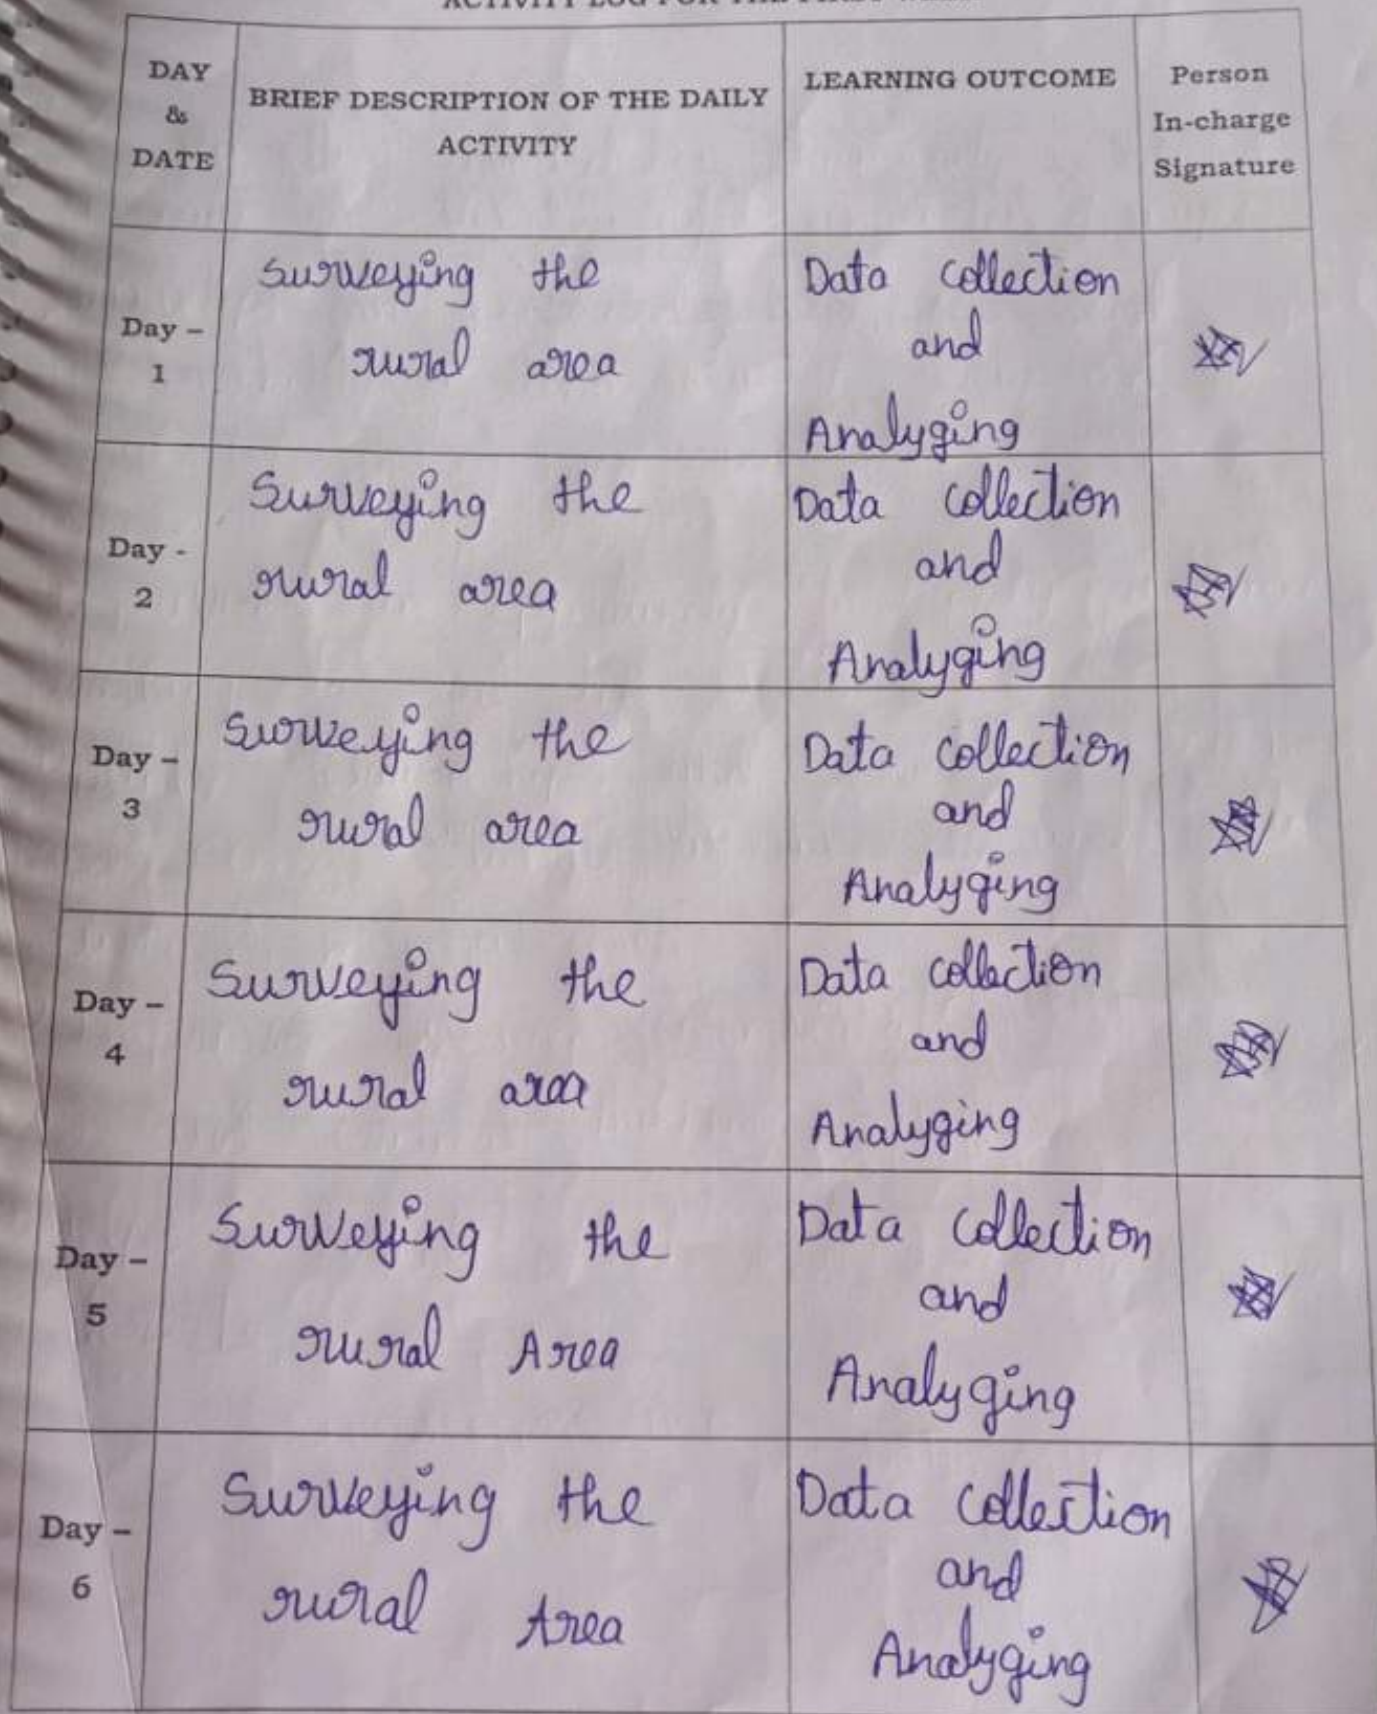 ACTIVITY LOG FOR THE FIRST WEEK
DAY
&
DATE
BRIEF DESCRIPTION OF THE DAILY
ACTIVITY
LEARNING OUTCOME
Person
In-charge
Signature
Day –
1
Surveying the
rural area
Data collection
and
Analyging
Day -
2
Surveying the
rural area
Data collection
and
Analyging
Day –
3
Surveying the
rural area
Data collection
and
Analyging
Day –
4
Surveying the
rural area
Data collection
and
Analyging
Day –
5
Surveying the
rural Area
Data collection
and
Analyging
Day –
6
Surveying the
rural Area
Data collection
and
Analyging